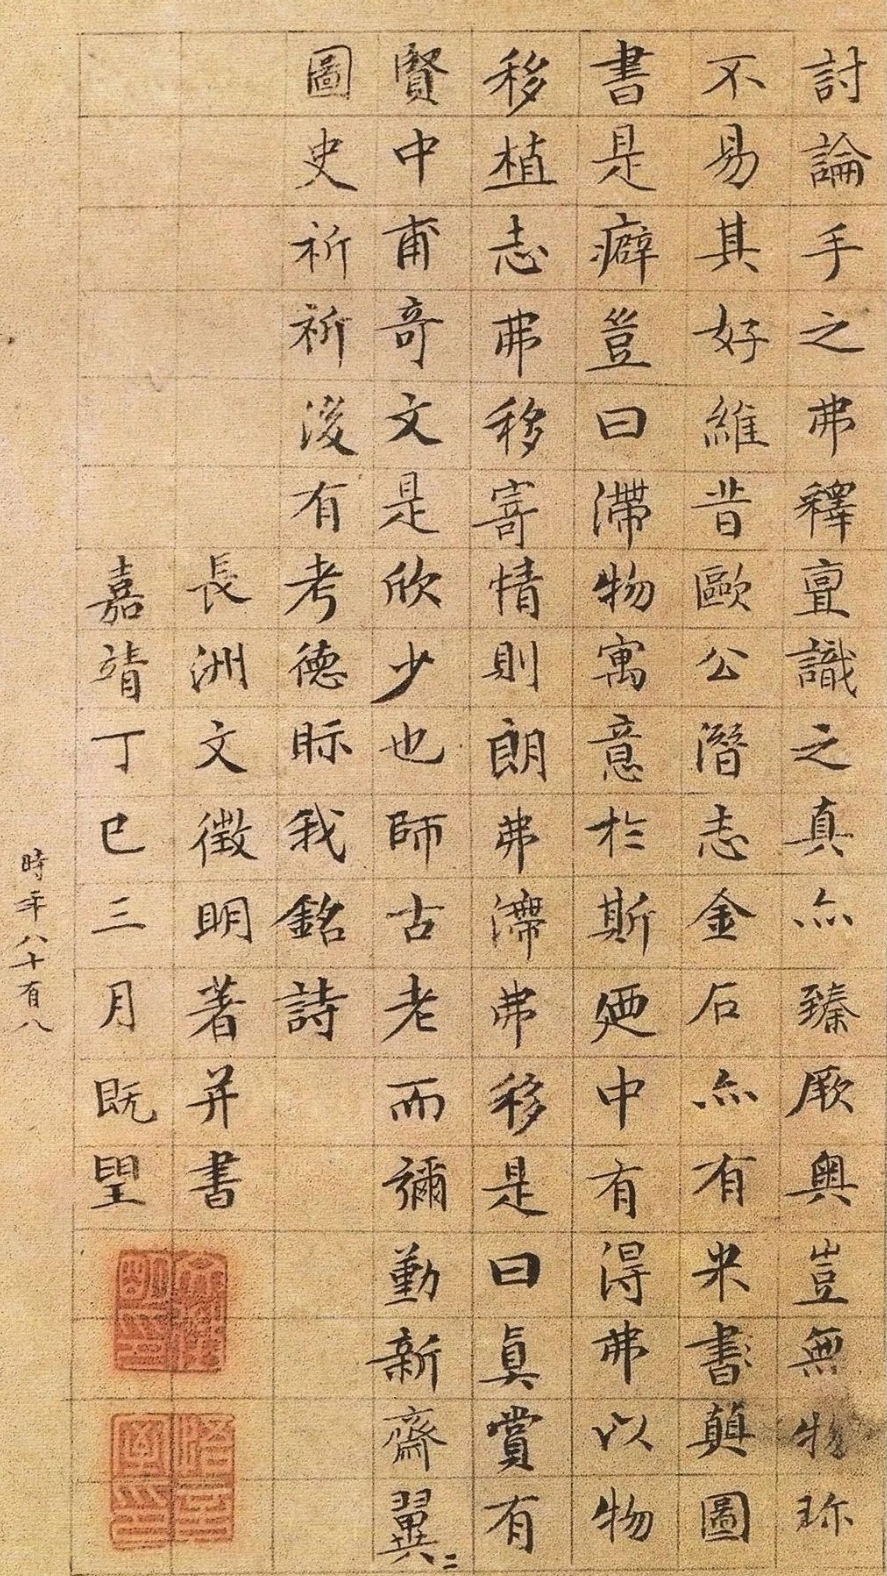 討論手之弗釋亶識之真亦臻厥奥豈無物珎
不易其好維昔歐公潛志金石亦有米書顛圖
書是癖豈曰滯物寓意於斯廼中有得弗以物
移植志弗移寄情則朗弗滯弗移是曰真賞有
賢中甫奇文是欣少也師古老而彌勤新齋翼〻
圖史祈祈後有考德眎我銘詩
長洲文徵明著并書
嘉靖丁巳三月既望
時年八十有八